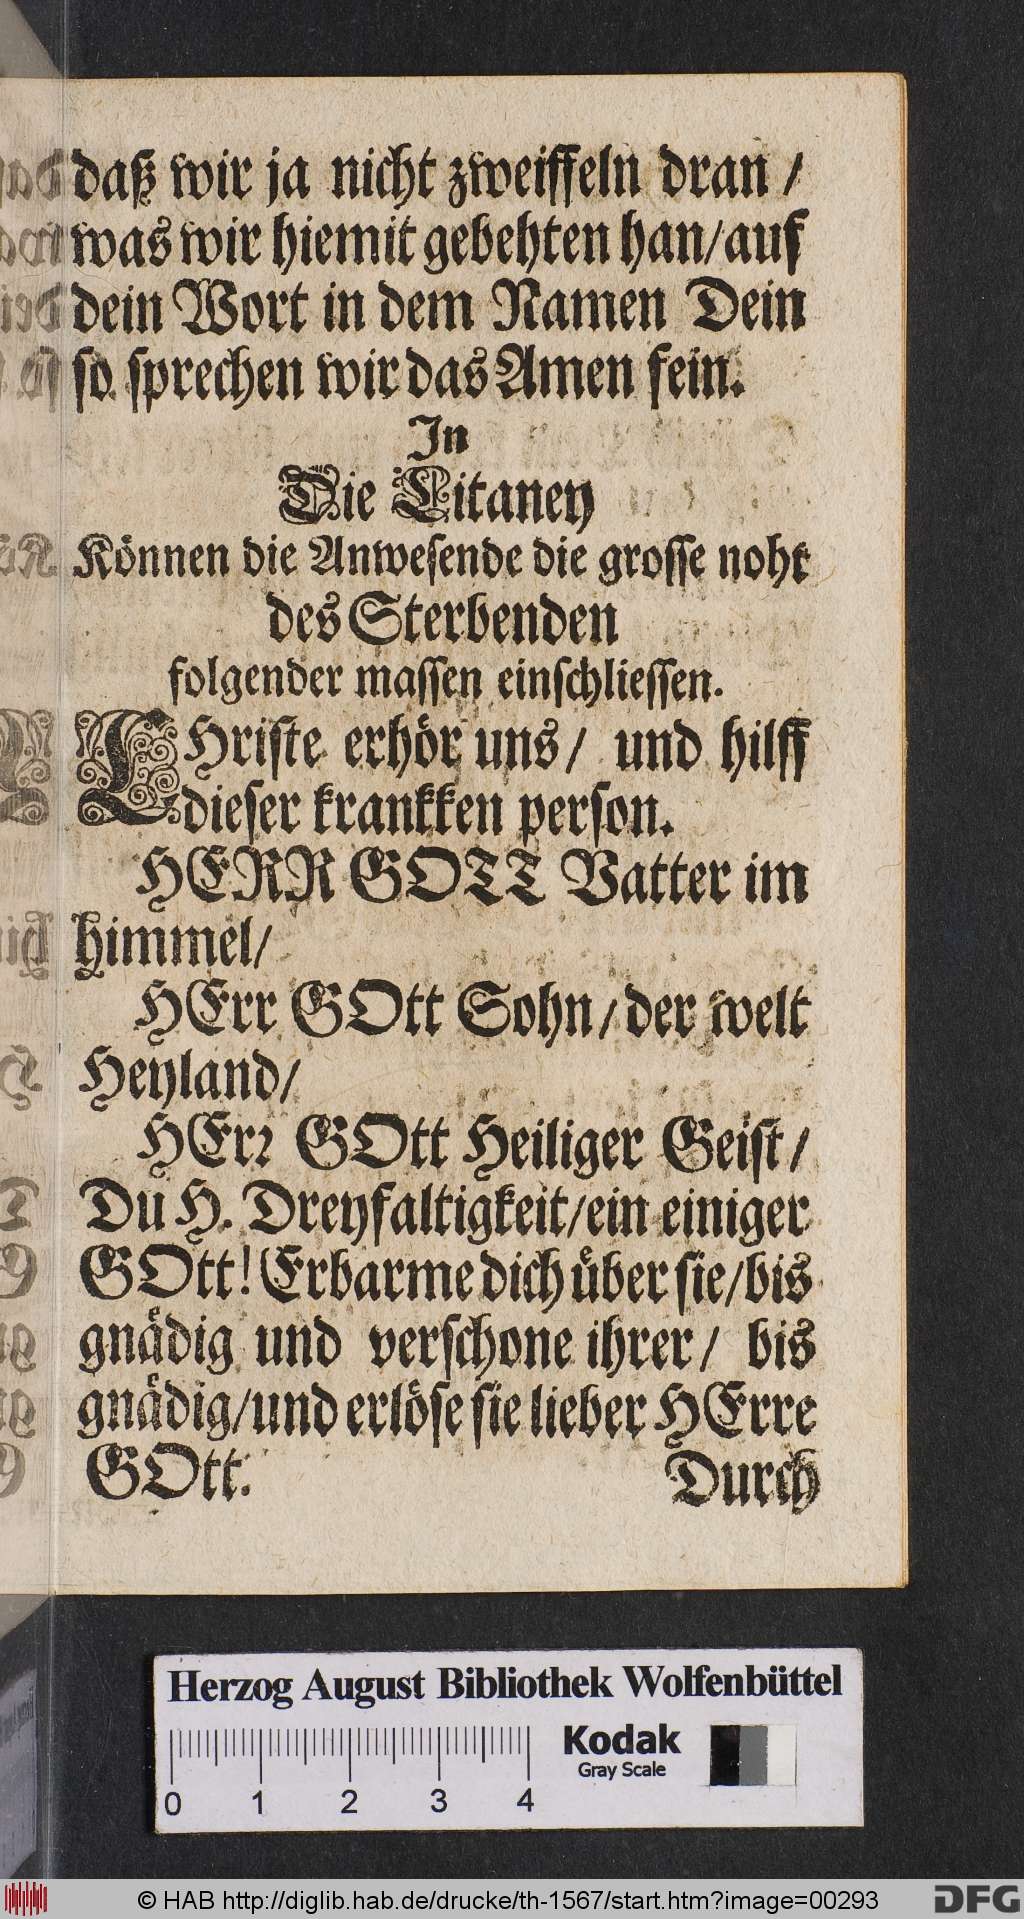 daß wir ja nicht zweiffeln dran /
was wir hiemit gebehten han/auf
dein Wort in dem Namen Dein
so sprechen wir das Amen fein.
In
Die Litaney
Können die Anwesende die grosse noht
des Sterbenden
folgender massen einschliessen.
CHriste erhör uns/ und hilff
dieser krankken person.
HERR GOTT Vatter im
himmel/
HErr GOtt Sohn/der welt
Heyland/
HErr GOtt Heiliger Geist/
Du H. Dreyfaltigkeit/ein einiger
GOtt! Erbarme dich über sie/bis
gnädig und verschone ihrer/ bis
gnädig/und erlöse sie lieber HErre
GOtt. Durch
Herzog August Bibliothek Wolfenbüttel
Kodak
Gray Scale
0 1 2 3 4
© HAB http://diglib.hab.de/drucke/th-1567/start.htm?image=00293
DFG